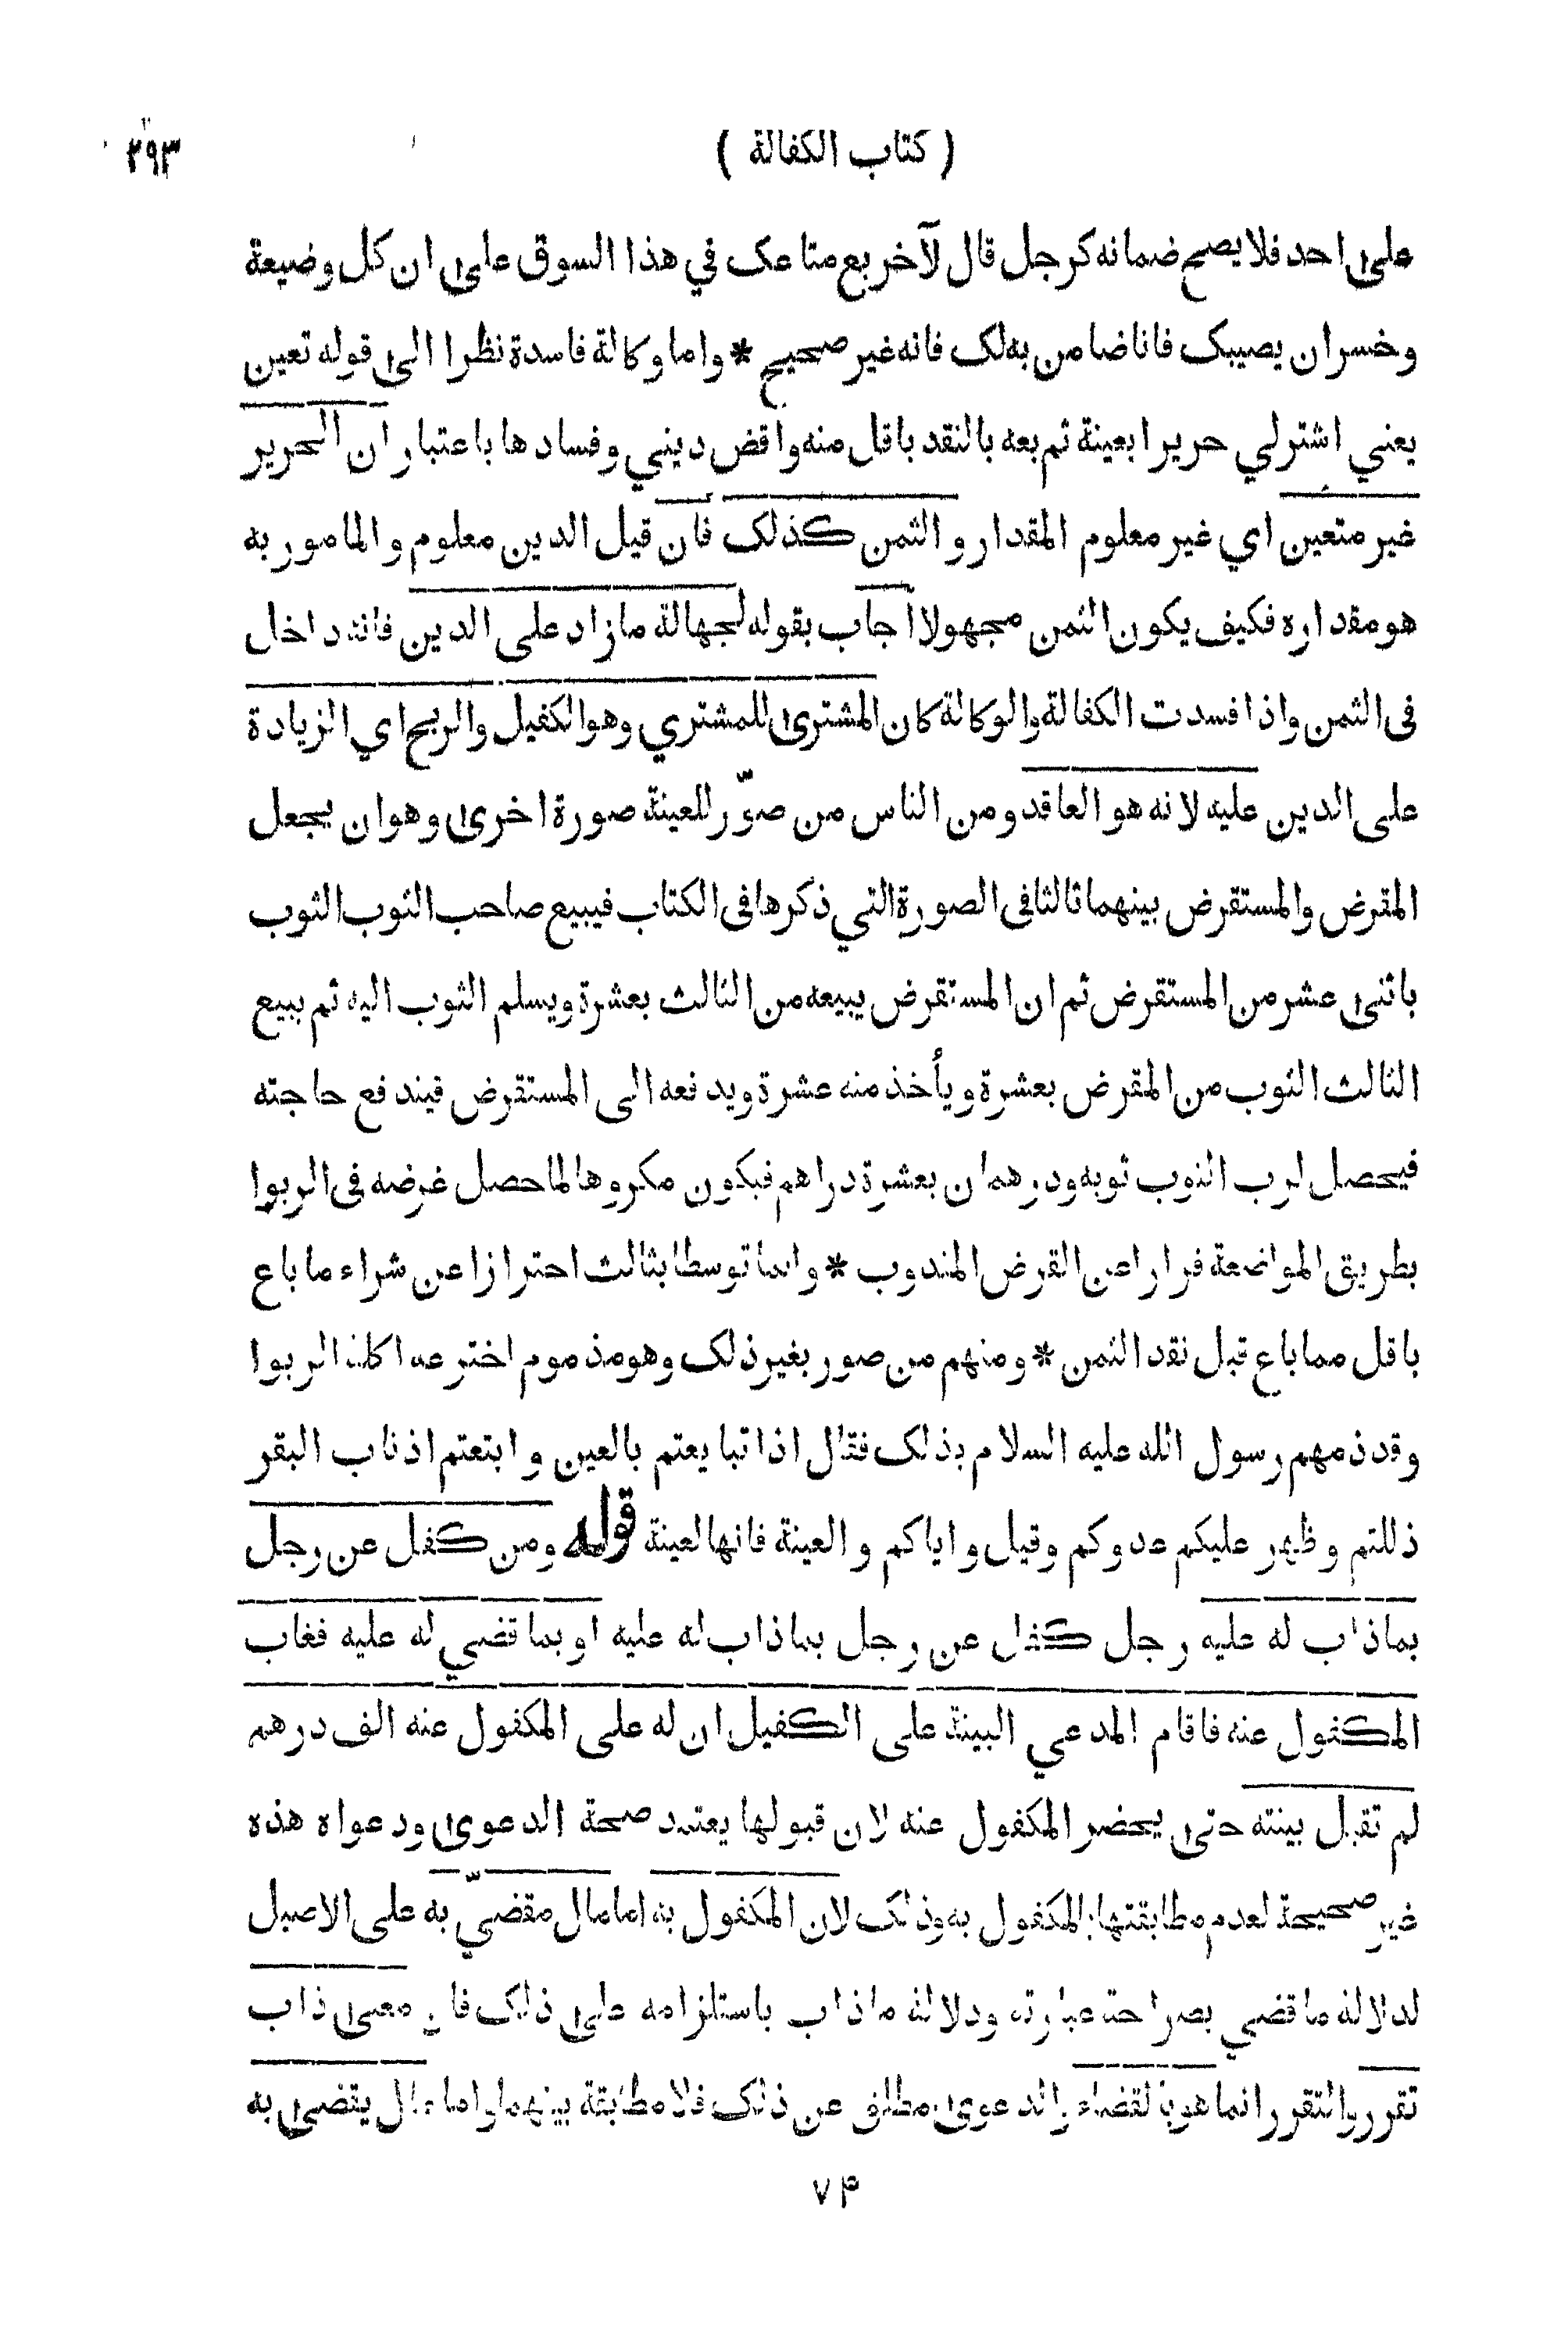 ( كتاب الكفالة ) ٢٩٣
على احد فلا يصح ضمانه كرجل قال لآخر بع متاعك في هذا السوق على ان كل وضيعة
وخسران يصيبك فانا ضامن به لك فانه غير صحيح * واما وكالة فاسدة نظرا الى قوله تعين
يعني اشترلي حريرا بعينة ثم بعه بالنقد باقل منه واقض ديني وفسادها باعتبار ان الحرير
غير متعين اي غير معلوم المقدار والثمن كذلك فان قيل الدين معلوم والمامور به
هو مقداره فكيف يكون الثمن مجهولا اجاب بقوله لجهالة ما زاد على الدين فانه داخل
فى الثمن واذا فسدت الكفالة والوكالة كان المشترى للمشتري وهو الكفيل والربح اي الزيادة
على الدين عليه لانه هو العاقد ومن الناس من صوّر للعينة صورة اخرى وهو ان يجعل
المقرض والمستقرض بينهما ثالثا فى الصورة التي ذكرها فى الكتاب فيبيع صاحب الثوب الثوب
باثنى عشر من المستقرض ثم ان المستقرض يبيعه من الثالث بعشرة ويسلم الثوب اليه ثم يبيع
الثالث الثوب من المقرض بعشرة ويأخذ منه عشرة ويدفعه الى المستقرض فيندفع حاجته
فيحصل لرب الثوب ثوبه ودرهمان بعشرة دراهم فيكون مكروها لما حصل غرضه فى الربوا
بطريق المواضعة فرارا عن القرض المندوب * وانما توسطا بثالث احترازا عن شراء ما باع
باقل مما باع قبل نقد الثمن * ومنهم من صور بغير ذلك وهو مذموم اخترعه اكلة الربوا
وقد ذمهم رسول الله عليه السلام بذلك فقال اذا تبايعتم بالعين وابتعتم اذناب البقر
ذللتم وظهر عليكم عدوكم وقيل واياكم والعينة فانها لعينة قوله ومن كفل عن رجل
بما ذاب له عليه رجل كفل عن رجل بما ذاب له عليه او بما قضي له عليه فغاب
المكفول عنه فاقام المدعي البينة على الكفيل ان له على المكفول عنه الف درهم
لم تقبل بينته حتى يحضر المكفول عنه لان قبولها يعتمد صحة الدعوى ودعواه هذه
غير صحيحة لعدم مطابقتها بالمكفول به وذلك لان المكفول به اما مال مقضيّ به على الاصيل
لدلالة ما قضي بصراحة عبارته ودلالة ما ذاب باستلزامه على ذلك فان معنى ذاب
تقرر والتقرر انما هو بالقضاء والدعوى مطلق عن ذلك فلا مطابقة بينهما واما مال يقضى به
٧٤